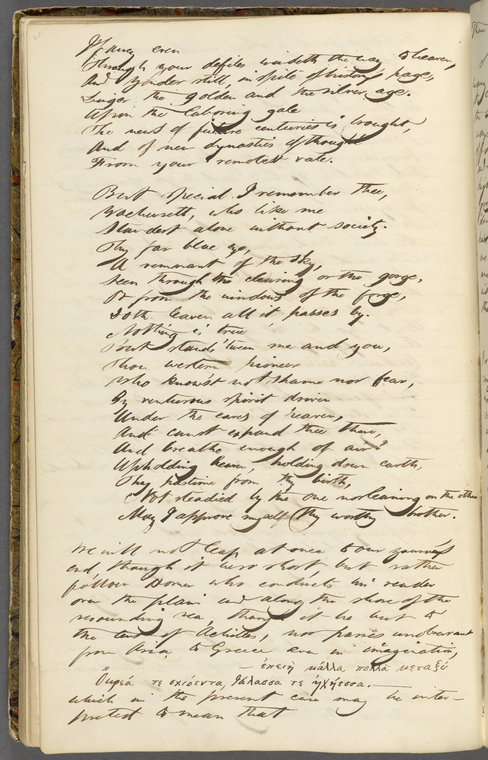 If any even
Through your defiles windeth the way to heaven
And yonder still, in spite of history's page,
Linger the golden and the silver age.
Upon the laboring gale
The news of future centuries is brought,
And of new dynasties of thought
From your remotest vale.
But special I remember thee,
Wachusett, who like me
Standest alone without society.
Thy far blue eye,
A remnant of the sky,
Seen through the clearing or the gorge,
Or from the windows of the forge,
Doth leaven all it passes by.
Nothing is true
But stands 'tween me and you,
Thou western pioneer
Who knowst not shame nor fear,
By venturous spirit driven
Under the eaves of heaven,
And canst expand thee there,
And breathe enough of air?
Upholding heaven, holding down earth,
Thy pastime from thy birth,
Not steadied by the one nor leaning on the other
May I approve myself thy worthy brother.
We will not leap at once to our journey's
end, though it were short but rather
follow Homer who conducts his reader
over the plain and along the shore of the
resounding sea, though it be but to
the tent of Achilles, nor passes unobservant
from Asia to Greece even in imagination,
— ἐπειὴ μάλλα πολλὰ μεταξὺ
Οὔρεά τε σκιόεντα, θάλασσα τε ἠχήεσσα. —
which in the present case may be inter-
preted to mean that